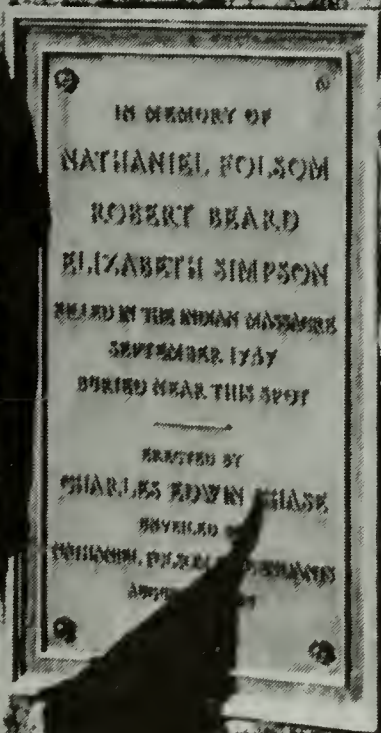 IN MEMORY OF
NATHANIEL FOLSOM
ROBERT BEARD
ELIZABETH SIMPSON
KILLED IN THE INDIAN MASSACRE
SEPTEMBER
BURIED NEAR THIS SPOT
ERECTED BY
CHARLES EDWIN CHASE
UNVEILED
FOLSOM